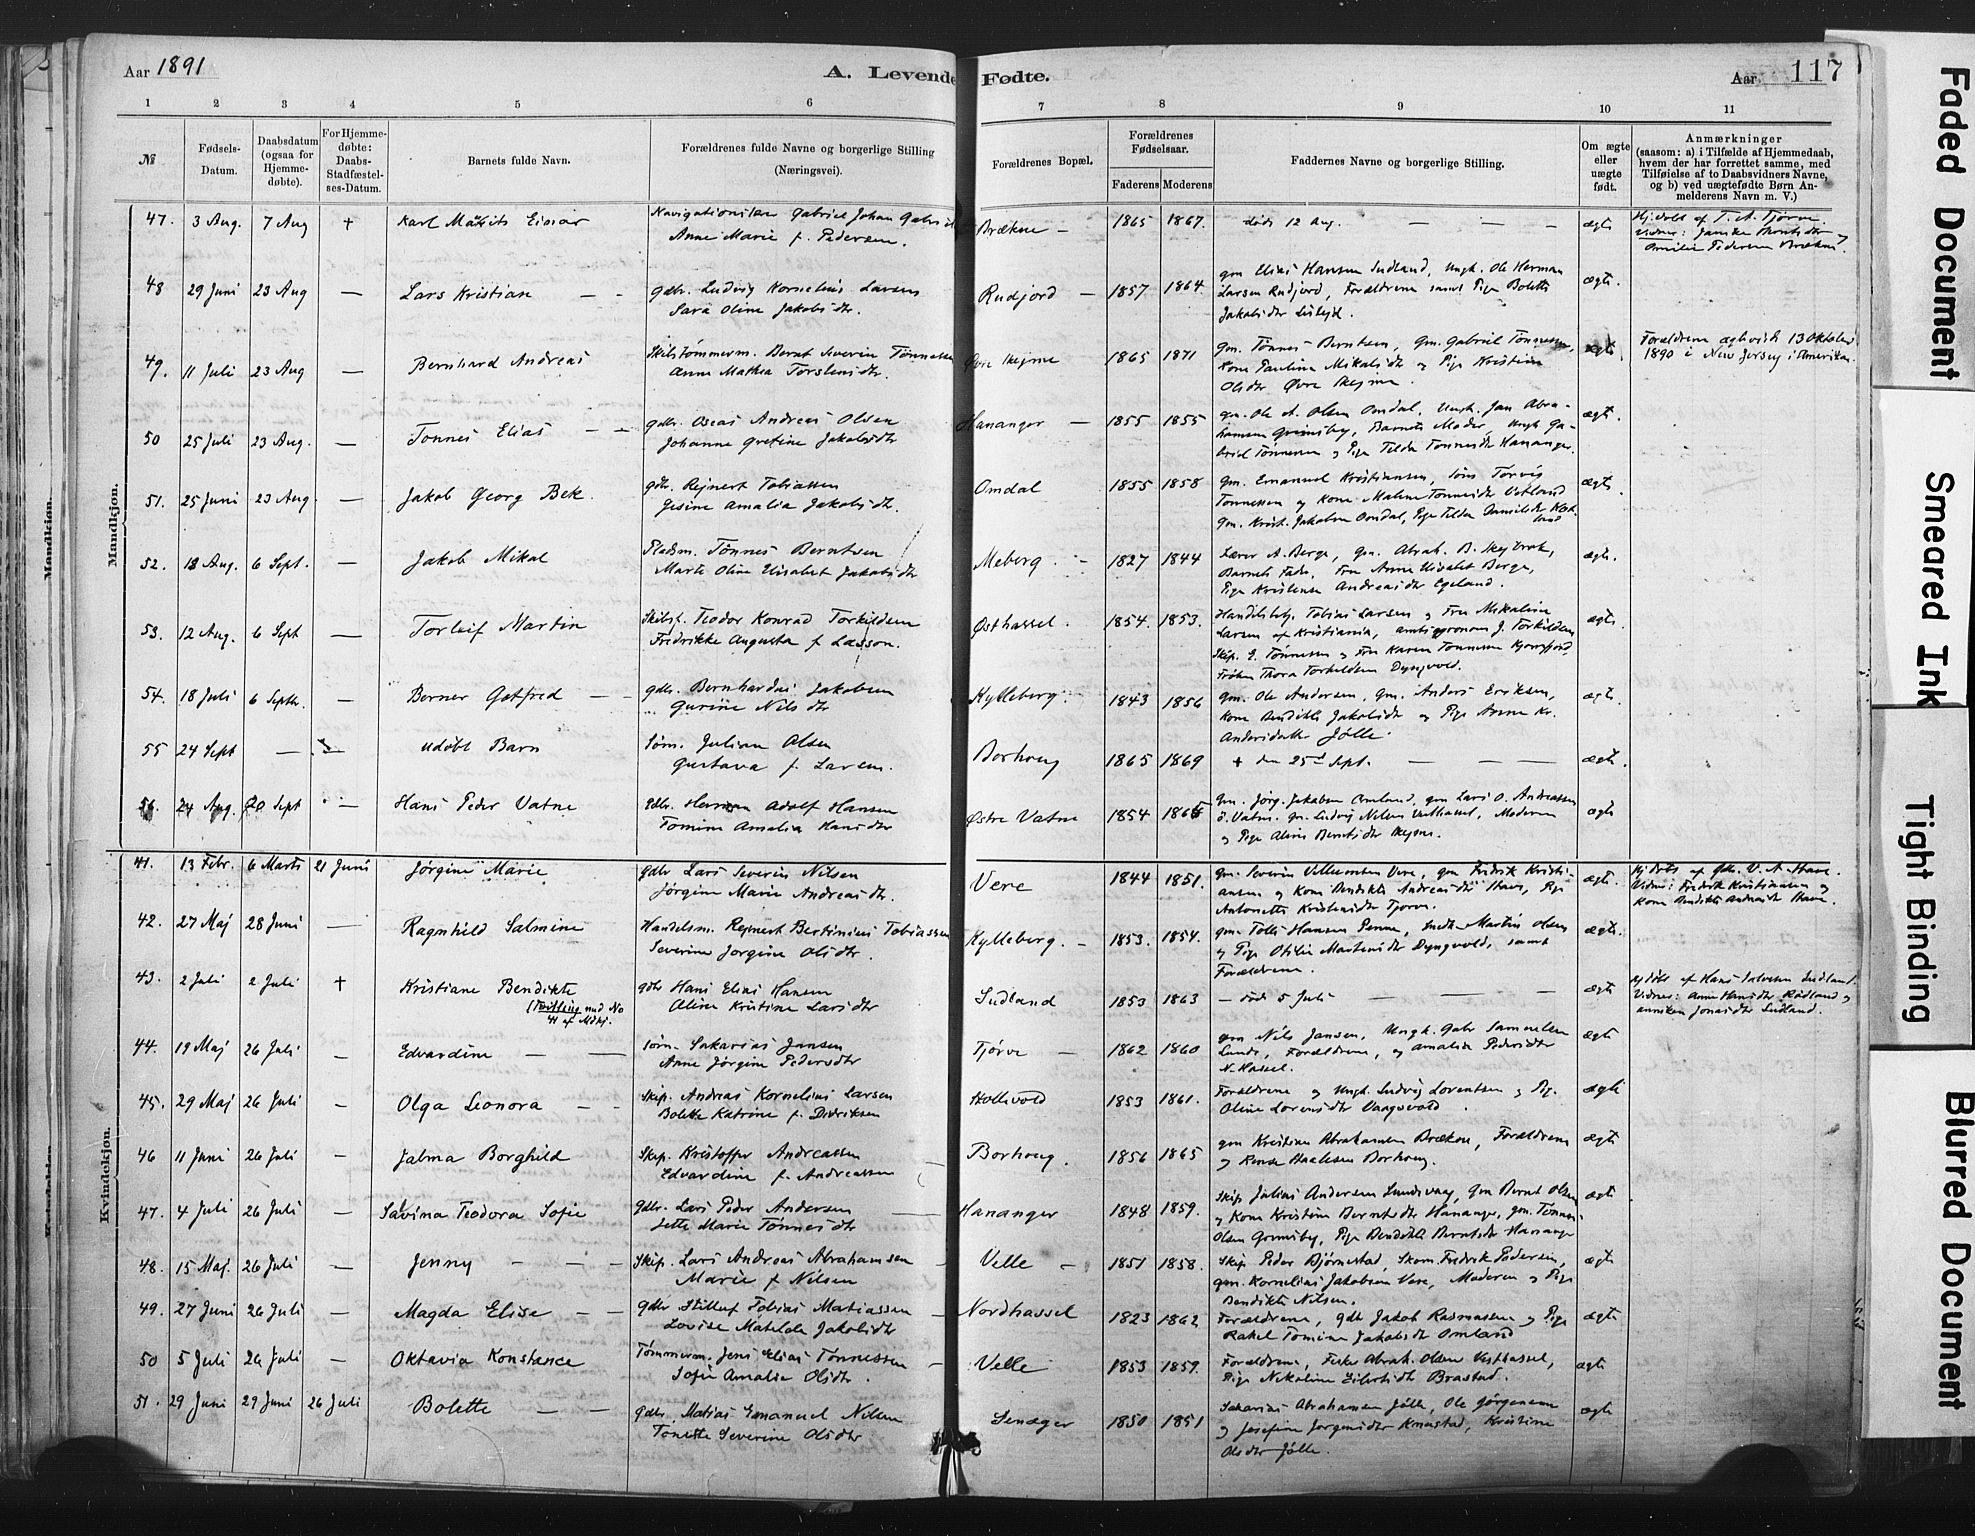 Aar 1891
A. Levende Fødte.
Aar 117
1 2 3 4 5 6 7 8 9 10 11
№
Fødsels-Datum.
Daabsdatum (ogsaa for Hjemmedøbte).
For Hjemmedøbte: Daabs-Stadfæstelses-Datum.
Barnets fulde Navn.
Forældrenes fulde Navne og borgerlige Stilling (Næringsvei).
Forældrenes Bopæl.
Forældrenes Fødselsaar.
Faderens Moderens
Faddernes Navne og borgerlige Stilling.
Om ægte eller uægte født.
Anmærkninger
(saasom: a) i Tilfælde af Hjemmedaab,
hvem der har forrettet samme, med
Tilføielse af to Daabsvidners Navne,
og b) ved uægtefødte Børn An-
melderens Navn m. V.)
Mandkjøn.
47. 3 Aug. 7 Aug + Karl Einar Gabriel Johan
Anne Marie f. Pedersen.
Brækne — 1865 1867. døde 12 Aug. — — — ægte
Hj.døbt af T. A. Tjørve.
Vidner:
48 29 Juni 23 Aug — Lars Kristian — - gdbr. Ludvig Kornelius Larsen
Sara Oline Jakobsdtr.
Rudjord — 1857 1864 gm Elias Hansen Sudland, Ungk. Ole Herman
Larsen Rudjord, Forældrene samt Pige Bolette
Jakobsdtr
ægte.
49. 11 Juli 23 Aug — Bernhard Andreas Bernt Severin Tønnessen
Anne Mathea Torstensdtr.
Øvre Skejme 1865 1871 gm. Tønnes Berntsen, gm. Gabriel Tønnessen,
Kone Pauline Mikalsdtr og Pige Kristine
Olsdtr Øvre Skejme.
ægte.
Forældrene ægteviet 13 Oktober
1890 i New Jersey i Amerika.
50 25 Juli 23 Aug. — Tønnes Elias — - gdbr. Oseas Andreas Olsen
Johanne Gretine Jakobsdtr
Hananger — 1855 1855 gm. Ole A. Olsen Omdal, Ungk. Jan Abra-
hamsen Grimsby, Barnets Moder, Ungk Ga-
briel Tønnessen og Pige Tilda Tønnesdtr Hananger.
ægte.
51. 25 Juni 23 Aug. — Jakob Georg Bek. gdbr. Rejnert Tobiassen
Gesine Amalia Jakobsdtr.
Omdal 1855 1858 gm. Emanuel Kristiansen, Torvig
Tønnessen og Kone Malene Tønnesdtr Vatland
gm. Krist. Jakobsen Omdal, Pige Tilda
ægte
52. 18 Aug. 6 Sept. — Jakob Mikal Pladsm. Tønnes Berntsen
Marte Oline Elisabet Jakobsdtr
Meberg. - 1827 1844 Lærer A. Berge, gm. Abrah. B.
Barnets Fader, Fru Anne Elisabet Berge,
Pige Kristense Andreasdtr Egeland.
ægte.
53. 12 Aug. 6 Sept — Torleif Martin Skibsf. Teodor Konrad Torkildsen
Fredrikke Augusta f Larsson.
Østhassel. 1854. 1853. Tobias Larsen og Fru Mikaline
Larsen af Kristiania, J. Torkildsen
Skip. Tønnessen og Fru Karen Tønnessen
Frøken Thora Torkildsen Dyngvold.
ægte.
54. 18 Juli 6 Septbr. — Berner Gotfred — - gdbr. Bernhardus Jakobsen
Gurine Nilsdtr
Kylleberg. 1843 1856 gm. Ole Andersen, gm. Anders Eriksen,
Kone Bendikte Jakobsdtr og Pige Anne Kr.
Andersdatter Jølle.
ægte.
55 24 Sept — — udøbt Barn Sørn. Julian Olsen
Gustava f. Larsen.
Borhoug 1865 1869 + den 25de Sept. — — — ægte.
56. 24 Aug. 20 Sept — Hans Peder Vatne Gdbr. Herman Adolf Hansen
Tomine Amalia Hansdtr
Østre Vatne 1854 1865 gm. Jørg. Jakobsen Omland, gm Lars O. Andreassen
Ø. Vatne. gm. Ludvig Nilsen Vesthassel, Moderen
og Pige Berntsdtr
ægte
Kvindekjøn.
41. 13 Febr. 6 Marts 21 Juni Jørgine Marie gdbr Lars Severin Nilsen
Jørgine Marie Andreasdtr.
Vere 1844 1851. gm. Severin Villumsen Vere, gm Fredrik Kristi-
ansen og Kone Bendikte Andreasdtr Have, Pige
Antonette Kristensdtr Tjørve.
ægte.
Hj.døbt af Gdbr. V. A. Have.
Vidner: Fredrik Kristiansen og
Kone Bendikte Andreasdtr Have.
42. 27 Maj 28 Juni — Ragnhild Salmine Handelsm. Rejnert Bertinius Tobiassen
Severine Jørgine Olsdtr.
Kylleberg. - 1853. 1854. gm. Hansen Penne, Martin Olsen
og Pige Otilie Martensdtr Dyngvold, samt
Forældrene.
ægte.
43. 2 Juli 2 Juli + Kristiane Bendikte
(Tvilling med No
41 af Mdkj.
gdbr Hans Elias Hansen
Aline Kristine Larsdtr
Sudland 1853 1863 — døde 5 Juli — — — ægte
Hj.døbt af Hans Salvesen Sudland.
Vidner: Anne Hansdtr Rødland og
Anniken Jonasdtr Sudland.
44. 19 Maj 26 Juli — Edvardine — — Sørn. Sakarias Jansen
Anne Jørgine Pedersdtr
Tjørve — 1862 1860 gm Nils Jansen, Ungk. Gabr Samuelsen
Lunde, Forældrene, og Amalia Pedersdtr
N. Hassel.
ægte
45. 29 Maj 26 Juli — Olga Leonora — - Skip. Andreas Kornelius Larsen
Bolette Katrine f. Didriksen
Hollevold 1853 1861. Forældrene og Ungk. Ludvig Lorentsen og Pig.
Oline Lorensdtr Vaagsvold.
ægte
46 11 Juni 26 Juli — Jalma Borghild Skip. Kristoffer Andreassen
Edvardine f. Andreassen
Borhoug. 1856 1865 gm Kristian Abrahamsen Brækne, Forældrene
og Borhoug.
ægte
47. 4 Juli 26 Juli — Savina Teodora Sofie gdbr. Lars Peder Andersen
Jette Marie Tønnesdtr
Hananger 1848 1859. Skip Julius Andersen Lundevaag, gm Bernt Olsen
og Kone Kristine Berntsdtr Hananger, gm. Tønnes
Olsen Grimsby, Pige Bendikte Berntsdtr Hananger
ægte
48. 15 Maj. 26 Juli — Jenny — - - Skip. Lars Andreas Abrahamsen
Marie f Nilsen
Velle — 1851 1858. Skip Peder Bjørnestad, Skom. Fredrik Pedersen,
gm. Kornelius Jakobsen Vere, Moderen og Pige
Bendikte Nilsen.
ægte
49. 27 Juni 26 Juli — Magda Elise — - gdbr Tobias Matiassen
Lovise Matilde Jakobsdtr
Nordhassel 1823 1862 Forældrene, gdb Jakob Rasmussen og Pige
Rakel Tomine Jakobsdtr Omland
ægte
50 5 Juli 26 Juli — Oktavia Konstance Tømmerm. Jens Elias Tønnessen
Sofie Amalia Olsdtr.
Velle 1853 1859. Forældrene, Fisker Abrah. Olsen Vesthassel,
Pige Nikoline Eilertsdtr Brastad.
ægte
51. 29 Juni 29 Juni 26 Juli Bolette — - gdbr. Matias Emanuel Nilsen
Tonette Severine Olsdtr
1850 1851 Sakarias Abrahamsen Jølle, Ole Jørgensen
og Josefine Jørgensdtr Kristine
Olsdtr Jølle.
ægte
Faded Document
Smeared Ink
Tight Binding
Blurred Document